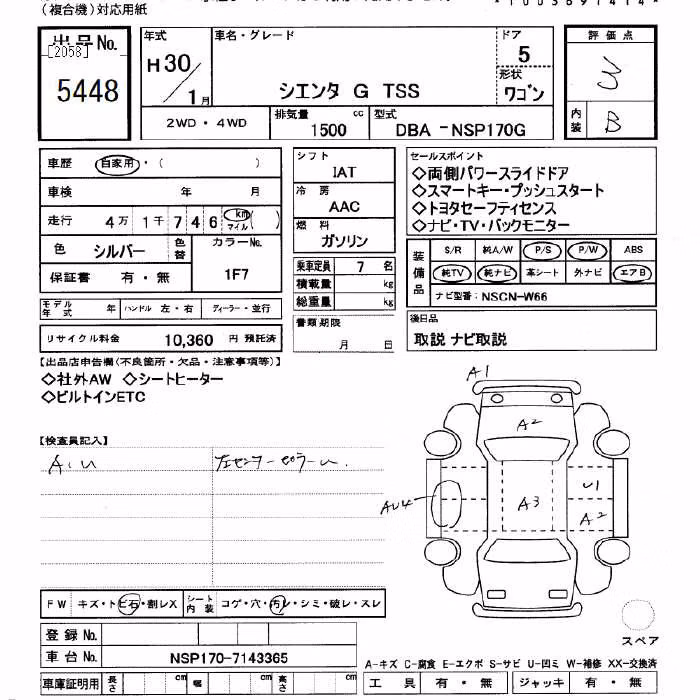 (複合機)対応用紙
出品No.
[2058]
5448
年式
H30/1月
車名・グレード
シエンタ G TSS
ドア
5
形状
ワゴン
評価点
3
内装
B
2WD・4WD
排気量
1500 cc
型式
DBA -NSP170G
車歴 自家用・( )
車検 年 月
走行 4万 1千 7 4 6 km マイル ( )
色 シルバー 色替
カラーNo.
1F7
保証書 有・無
モデル年式 年 ハンドル 左・右 ディーラー・並行
リサイクル料金 10,360 円 預託済
シフト
IAT
冷房
AAC
燃料
ガソリン
乗車定員 7 名
積載量 kg
総重量 kg
書類期限
月 日
セールスポイント
◇両側パワースライドドア
◇スマートキー・プッシュスタート
◇トヨタセーフティセンス
◇ナビ・TV・バックモニター
装備品
S/R 純A/W P/S P/W ABS
純TV 純ナビ 革シート 外ナビ エアB
ナビ型番: NSCN-W66
後日品
取説 ナビ取説
【出品店申告欄(不良箇所・欠品・注意事項等)】
◇社外AW ◇シートヒーター
◇ビルトインETC
【検査員記入】
A.U
左センターピラーU.
A1
A2
A3
U1
A2
AU4
FW キズ・トビ石・割レX
シート内装 コゲ・穴・汚レ・シミ・破レ・スレ
登録No.
車台No. NSP170-7143365
車庫証明用 長さ cm 幅 cm 高さ cm
スペア
A-キズ C-腐食 E-エクボ S-サビ U-凹ミ W-補修 XX-交換済
工具 有・無 ジャッキ 有・無